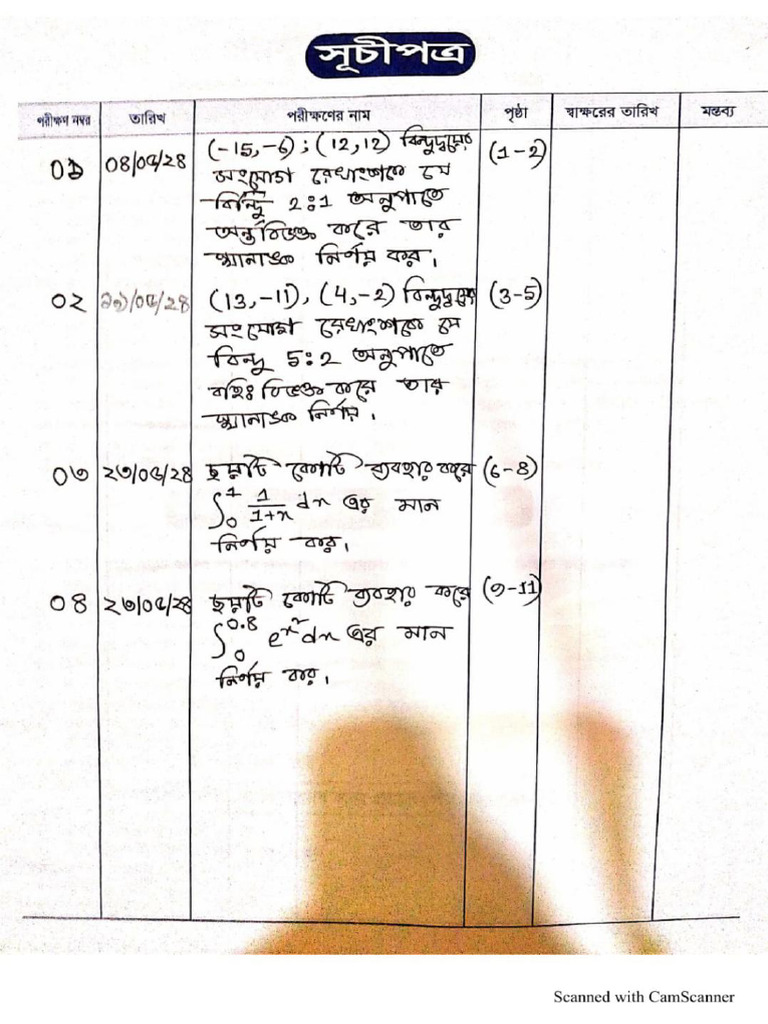 সূচীপত্র
পরীক্ষণ নম্বর তারিখ পরীক্ষণের নাম পৃষ্ঠা স্বাক্ষরের তারিখ মন্তব্য
০১ ০৪/০৫/২৪ (-15,-6) ; (12,12) বিন্দুদ্বয়ের (1-2)
সংযোগ রেখাংশকে যে
বিন্দু 2:1 অনুপাতে
অন্তর্বিভক্ত করে তার
স্থানাঙ্ক নির্ণয় কর।
০২ /০৫/২৪ (13,-11), (4,-2) বিন্দুদ্বয়ের (3-5)
সংযোগ রেখাংশকে যে
বিন্দু 5:2 অনুপাতে
বহিঃবিভক্ত করে তার
স্থানাঙ্ক নির্ণয়।
০৩ ২৩/০৫/২৪ ছয়টি কোটি ব্যবহার করে (6-8)
∫₀¹ 1/(1+x) dx এর মান
নির্ণয় কর।
০৪ ২৩/০৫/২৪ ছয়টি কোটি ব্যবহার করে (9-11)
∫₀^0.8 e^x² dx এর মান
নির্ণয় কর।
Scanned with CamScanner